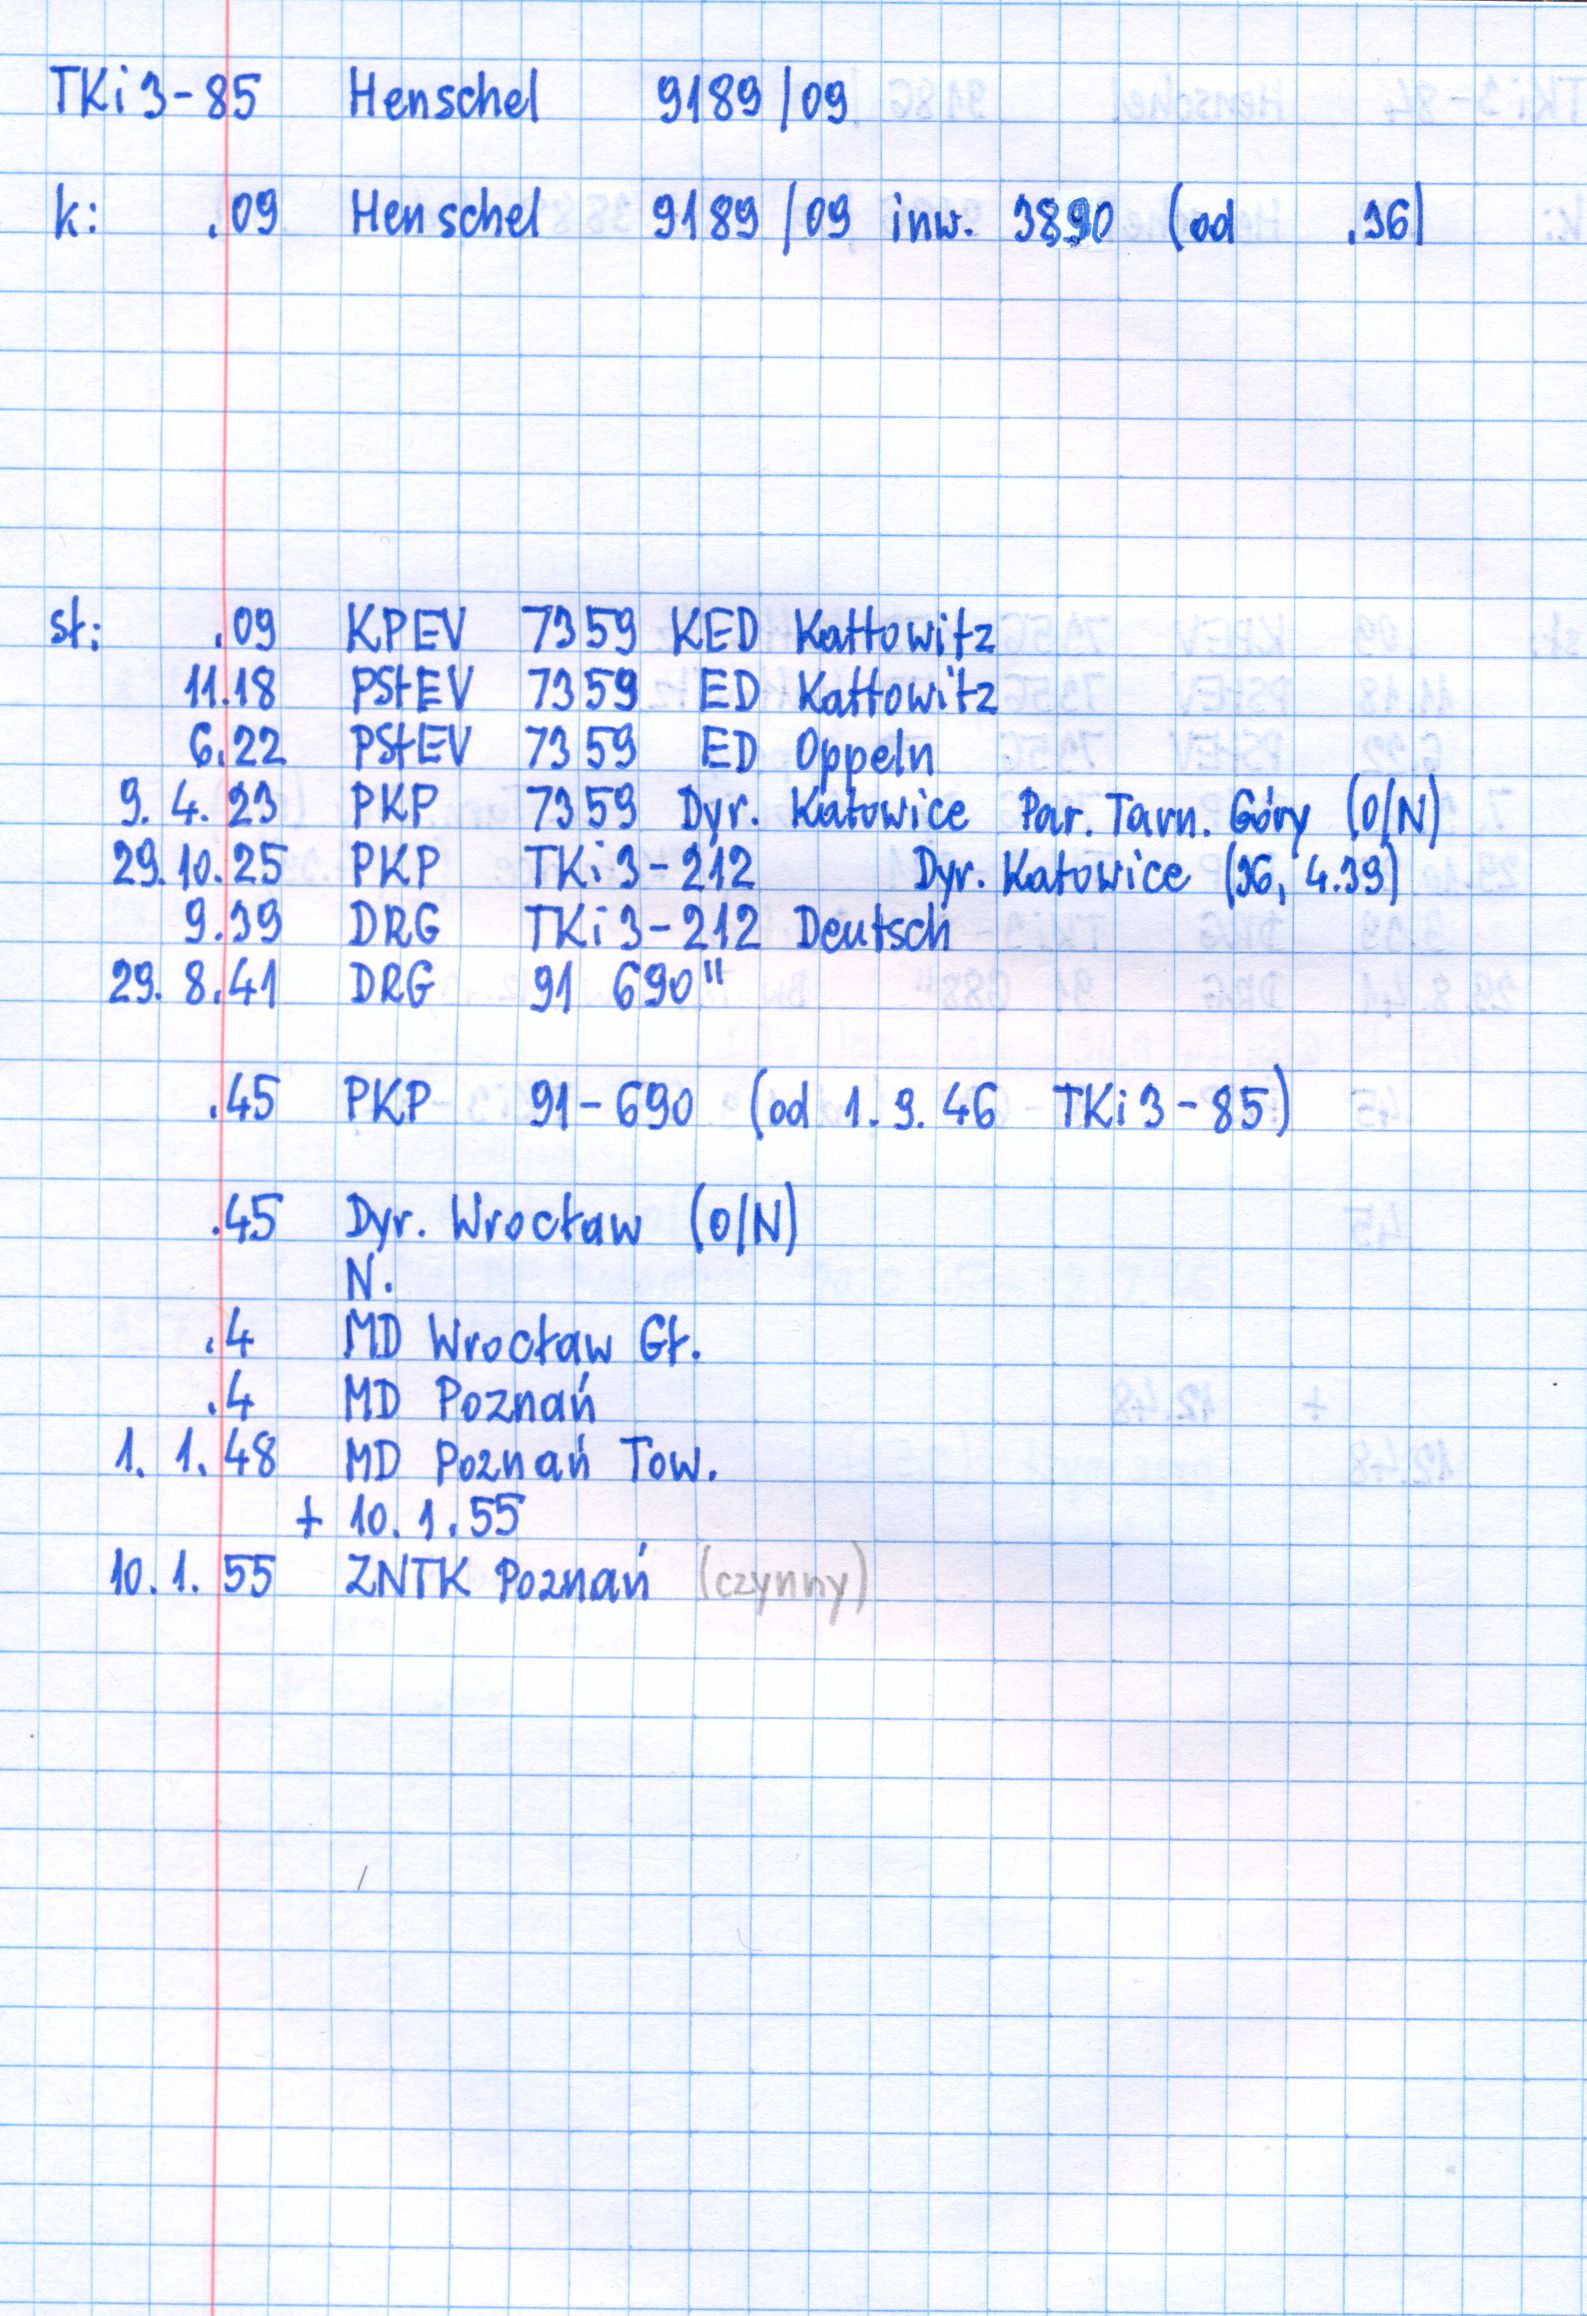 TKi3-85 Henschel 9189/09
k: .09 Henschel 9189/09 inw. 3890 (od .36)
st: .09 KPEV 7359 KED Kattowitz
11.18 PStEV 7359 ED Kattowitz
6.22 PStEV 7359 ED Oppeln
9. 4. 23 PKP 7359 Dyr. Katowice Par. Tarn. Góry (O/N)
29.10.25 PKP TKi3-212 Dyr. Katowice (36, 4.39)
9.39 DRG TKi3-212 Deutsch
29. 8.41 DRG 91 690"
.45 PKP 91-690 (od 1.9.46 TKi3-85)
.45 Dyr. Wrocław (O/N)
N.
.4 MD Wrocław Gł.
.4 MD Poznań
1. 1. 48 MD Poznań Tow.
+ 10.1.55
10.1.55 ZNTK Poznań (czynny)